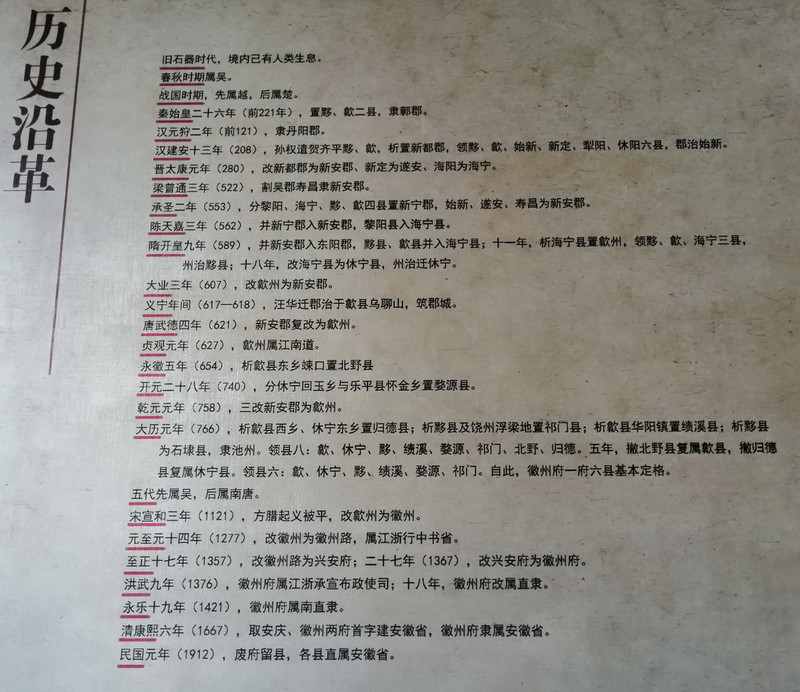 历史沿革
旧石器时代，境内已有人类生息。
春秋时期属吴。
战国时期，先属越，后属楚。
秦始皇二十六年（前221年），置黟、歙二县，隶鄣郡。
汉元狩二年（前121），隶丹阳郡。
汉建安十三年（208），孙权遣贺齐平黟、歙，析置新都郡，领黟、歙、始新、新定、犁阳、休阳六县，郡治始新。
晋太康元年（280），改新都郡为新安郡、新定为遂安、海阳为海宁。
梁普通三年（522），割吴郡寿昌隶新安郡。
承圣二年（553），分黎阳、海宁、黟、歙四县置新宁郡，始新、遂安、寿昌为新安郡。
陈天嘉三年（562），并新宁郡入新安郡，黎阳县入海宁县。
隋开皇九年（589），并新安郡入东阳郡，黟县、歙县并入海宁县；十一年，析海宁县置歙州，领黟、歙、海宁三县，
州治黟县；十八年，改海宁县为休宁县，州治迁休宁。
大业三年（607），改歙州为新安郡。
义宁年间（617—618），汪华迁郡治于歙县乌聊山，筑郡城。
唐武德四年（621），新安郡复改为歙州。
贞观元年（627），歙州属江南道。
永徽五年（654），析歙县东乡竦口置北野县
开元二十八年（740），分休宁回玉乡与乐平县怀金乡置婺源县。
乾元元年（758），三改新安郡为歙州。
大历元年（766），析歙县西乡、休宁东乡置归德县；析黟县及饶州浮梁地置祁门县；析歙县华阳镇置绩溪县；析黟县
为石埭县，隶池州。领县八：歙、休宁、黟、绩溪、婺源、祁门、北野、归德。五年，撤北野县复属歙县，撤归德
县复属休宁县。领县六：歙、休宁、黟、绩溪、婺源、祁门。自此，徽州府一府六县基本定格。
五代先属吴，后属南唐。
宋宣和三年（1121），方腊起义被平，改歙州为徽州。
元至元十四年（1277），改徽州为徽州路，属江浙行中书省。
至正十七年（1357），改徽州路为兴安府；二十七年（1367），改兴安府为徽州府。
洪武九年（1376），徽州府属江浙承宣布政使司；十八年，徽州府改属直隶。
永乐十九年（1421），徽州府属南直隶。
清康熙六年（1667），取安庆、徽州两府首字建安徽省，徽州府隶属安徽省。
民国元年（1912），废府留县，各县直属安徽省。